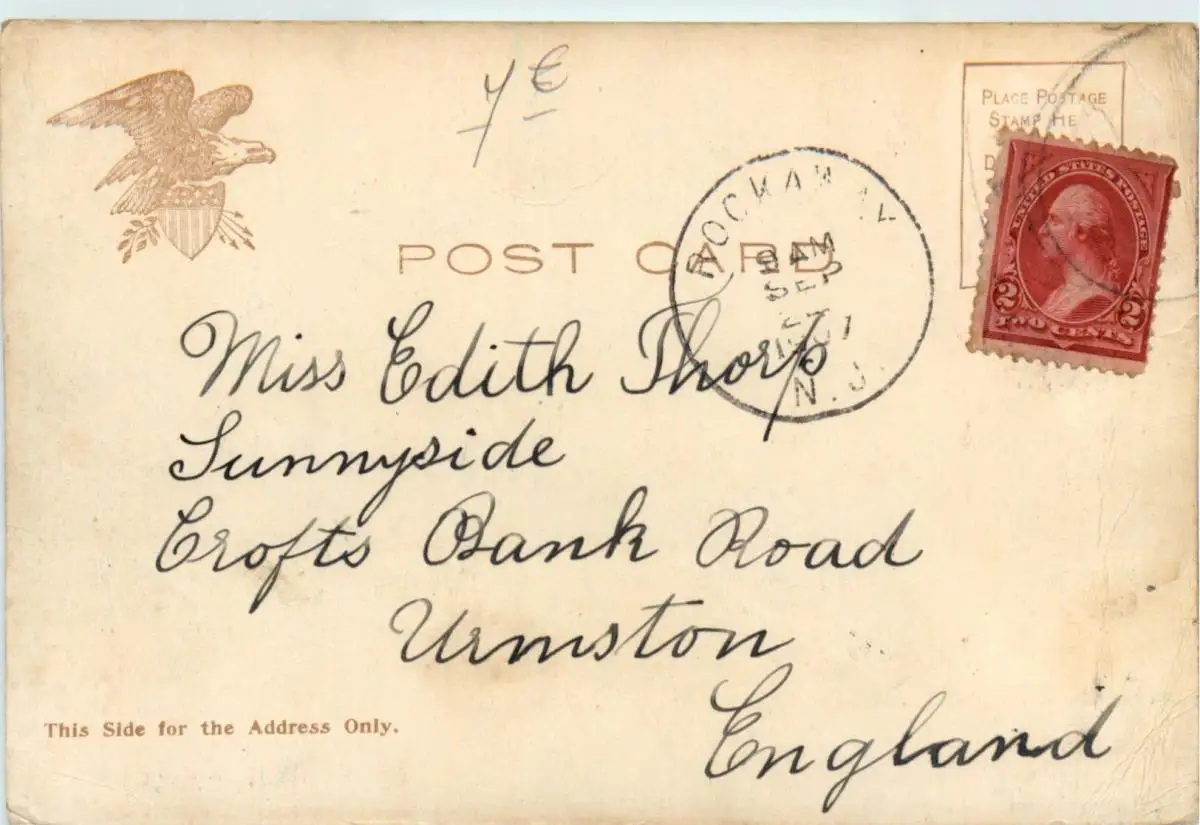 7€
PLACE POSTAGE
STAMP HE
D
UNITED STATES POSTAGE
2 2
TWO CENTS
ROCKAWAY
9 AM
SEP
N.J.
POST CARD
Miss Edith Thorp
Sunnyside
Crofts Bank Road
Urmston
England
This Side for the Address Only.